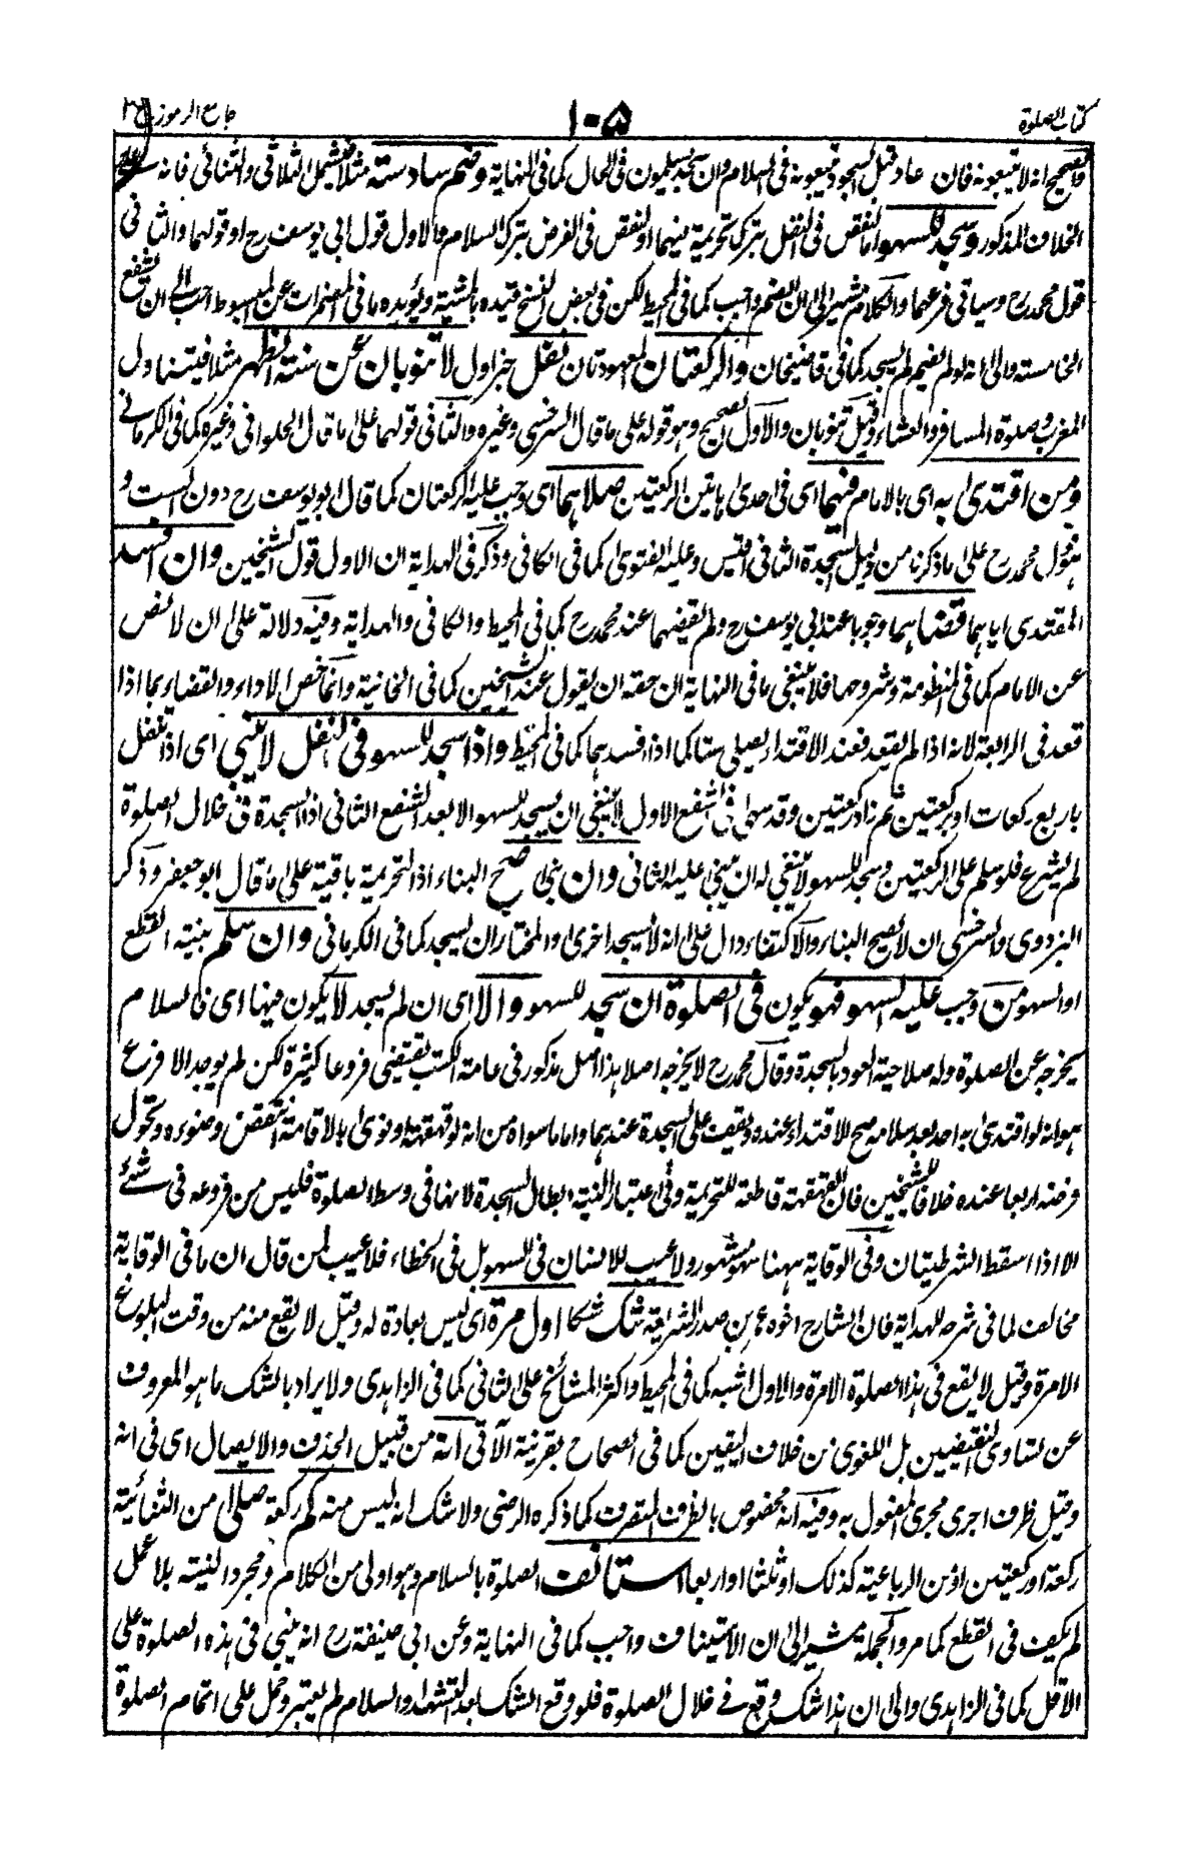 كتاب الصلوة ١٠٥ جامع الرموز
والصحيح انه لا يتبعونه فان عاد قبل السجود يتبعونه فى السلام وان سجد يسلمون فى الحال كما فى النهاية وضم سادسته مثلا ليشمل الثلاثى والثنائى فانه على
الخلاف المذكور وسجد للسهو اما لنقص فى النفل بترك تحريمة فيهما او لنقص فى الفرض بترك السلام فالاول قول ابى يوسف رح او قولهما والثانى
قول محمد رح وسياتى فرعهما والكلام مشير الى ان الضم واجب كما فى المحيط لكن فى بعض النسخ قيده بالمشية ويؤيده ما فى المضمرات عن المبسوط احب الى ان يشفع
الخامسة والى انه لو لم يضم لم يسجد كما فى قاضيخان والركعتان المعهودتان نفل خبر اول لا تنوبان عن سنة الظهر مثلا فيتناول
المغرب وصلوة المسافر والعشاء وقيل تنوبان والاول الصحيح وهو قوله على ما قال السرخسى وغيره والثانى قولهما على ما قال الحلوانى وغيره كما فى الكرمانى
ومن اقتدى به اى بالامام فيهما اى فى احدى هاتين الركعتين صلاهما اى يوجب عليه الركعتان كما قال ابو يوسف رح دون الست و
هو قول محمد رح على ما ذكرنا من دليل السجدة الثانى اقيس وعليه الفتوى كما فى الكافى وذكر فى الهداية ان الاول قول الشيخين وان افسد
المقتدى اياهما قضاهما وجوبا عند ابى يوسف رح ولم يقضهما عند محمد رح كما فى المحيط والكافى والهداية وفيه دلالة على ان لا نص
عن الامام كما فى المنظومة وشروحها فلا ينبغى ما فى النهاية ان حقه ان يقول عند الشيخين كما فى الخانية وانما خص الاداء والقضاء بما اذا
قعد فى الرابعة لانه اذا لم يقعد فعند الاقتداء يصلى ستا كما اذا فسدهما كما فى المحيط واذا سجد للسهو فى النفل لا يبنى اى اذا تنفل
باربع ركعات او بركعتين ثم زاد ركعتين وقد سهى فى الشفع الاول لا ينبغى ان يسجد للسهو الا بعد الشفع الثانى اذ السجدة فى خلال الصلوة
لم يشرع فلو سلم على الركعتين وسجد للسهو لا ينبغى له ان يبنى عليه الثانى وان بنى صح البناء اذ التحريمة باقية على ما قال ابو جعفر وذكر
البزدوى والسرخسى ان لا يصح البناء والاكتفاء دال على انه لا يسجد اخرى والمختار ان يسجد كما فى الكرمانى وان سلم بنية القطع
او السهو من وجب عليه السهو فهو يكون فى الصلوة ان سجد للسهو والا اى ان لم يسجد لا يكون فيها اى فالسلام
يخرجه عن الصلوة وله صلاحية العود بالسجدة وقال محمد رح لا يخرجه اصلا هذا اصل مذكور فى عامة الكتب يقتضى فروعا كثيرة لكن لم يوجد الا فرع
هو انه لو اقتدى به احد بعد سلامه صح الاقتداء عنده ويقف على السجدة عندهما واما ما سواه من انه لو قهقهة او نوى بالاقامة انتقض وضوءه وتحول
فرضه اربعا عنده خلافا للشيخين فان القهقهة قاطعة للتحريمة وفى اعتبار النية ابطال السجدة لانها فى وسط الصلوة فليس من فروعه فى شئ
الا اذا اسقط الشرطيتان وفى الوقاية ههنا سهو مشهور ولا عيب للانسان فى السهو بل فى الخطاء فلا عيب لمن قال ان ما فى الوقاية
مخالف لما فى شرحه للهداية فان الشارح اخوه عمر بن صدر الشريعة شك شكا اول مرة اى ليس بعادة له وقيل لا يقع منه من وقت البلوغ
الا مرة وقيل لا يقع فى هذه الصلوة الا مرة والاول اشبه كما فى المحيط واكثر المشائخ على الثانى كما فى الزاهدى ولا يراد بالشك ما هو المعروف
عن تساوى النقيضين بل اللغوى من خلاف اليقين كما فى الصحاح بقرينة الآتى انه من قبيل الحذف والايصال اى فى انه
وقيل ظرف اجرى مجرى المفعول به وفيه انه مخصوص بالظرف المتصرف كما ذكره الرضى ولا شك انه ليس منه كم ركعة صلى من الثنائية
ركعة او ركعتين او من الرباعية كذلك او ثلثا او اربعا استانف الصلوة بالسلام وهو اولى من الكلام ومجرد النية بلا عمل
لم يكف فى القطع كما مر والجملة مشير الى ان الاستيناف واجب كما فى النهاية وعن ابى حنيفة رح انه يبنى فى هذه الصلوة على
الاقل كما فى الزاهدى والى ان هذا شك وقع فى خلال الصلوة فلو وقع الشك بعد التشهد او السلام لم يعتبر وحمل على اتمام الصلوة